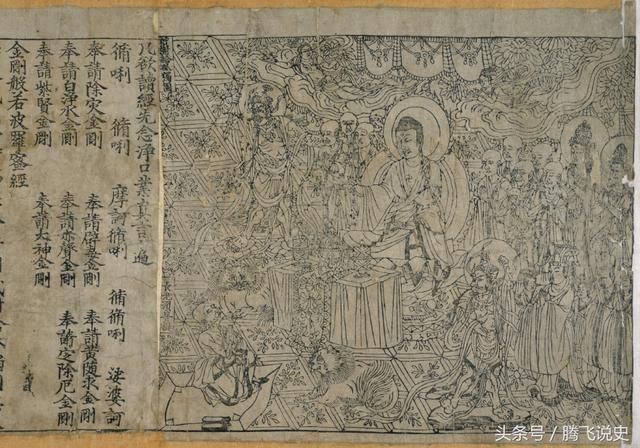 祇樹給孤獨園
凡欲讀經先念淨口業真言一遍
脩唎 脩唎 摩訶脩唎 脩脩唎 娑婆訶
奉請除灾金剛 奉請辟毒金剛 奉請黃隨求金剛
奉請白淨水金剛 奉請赤聲金剛 奉請定除厄金剛
奉請紫賢金剛 奉請大神金剛
金剛般若波羅蜜經
头条号 / 腾飞说史